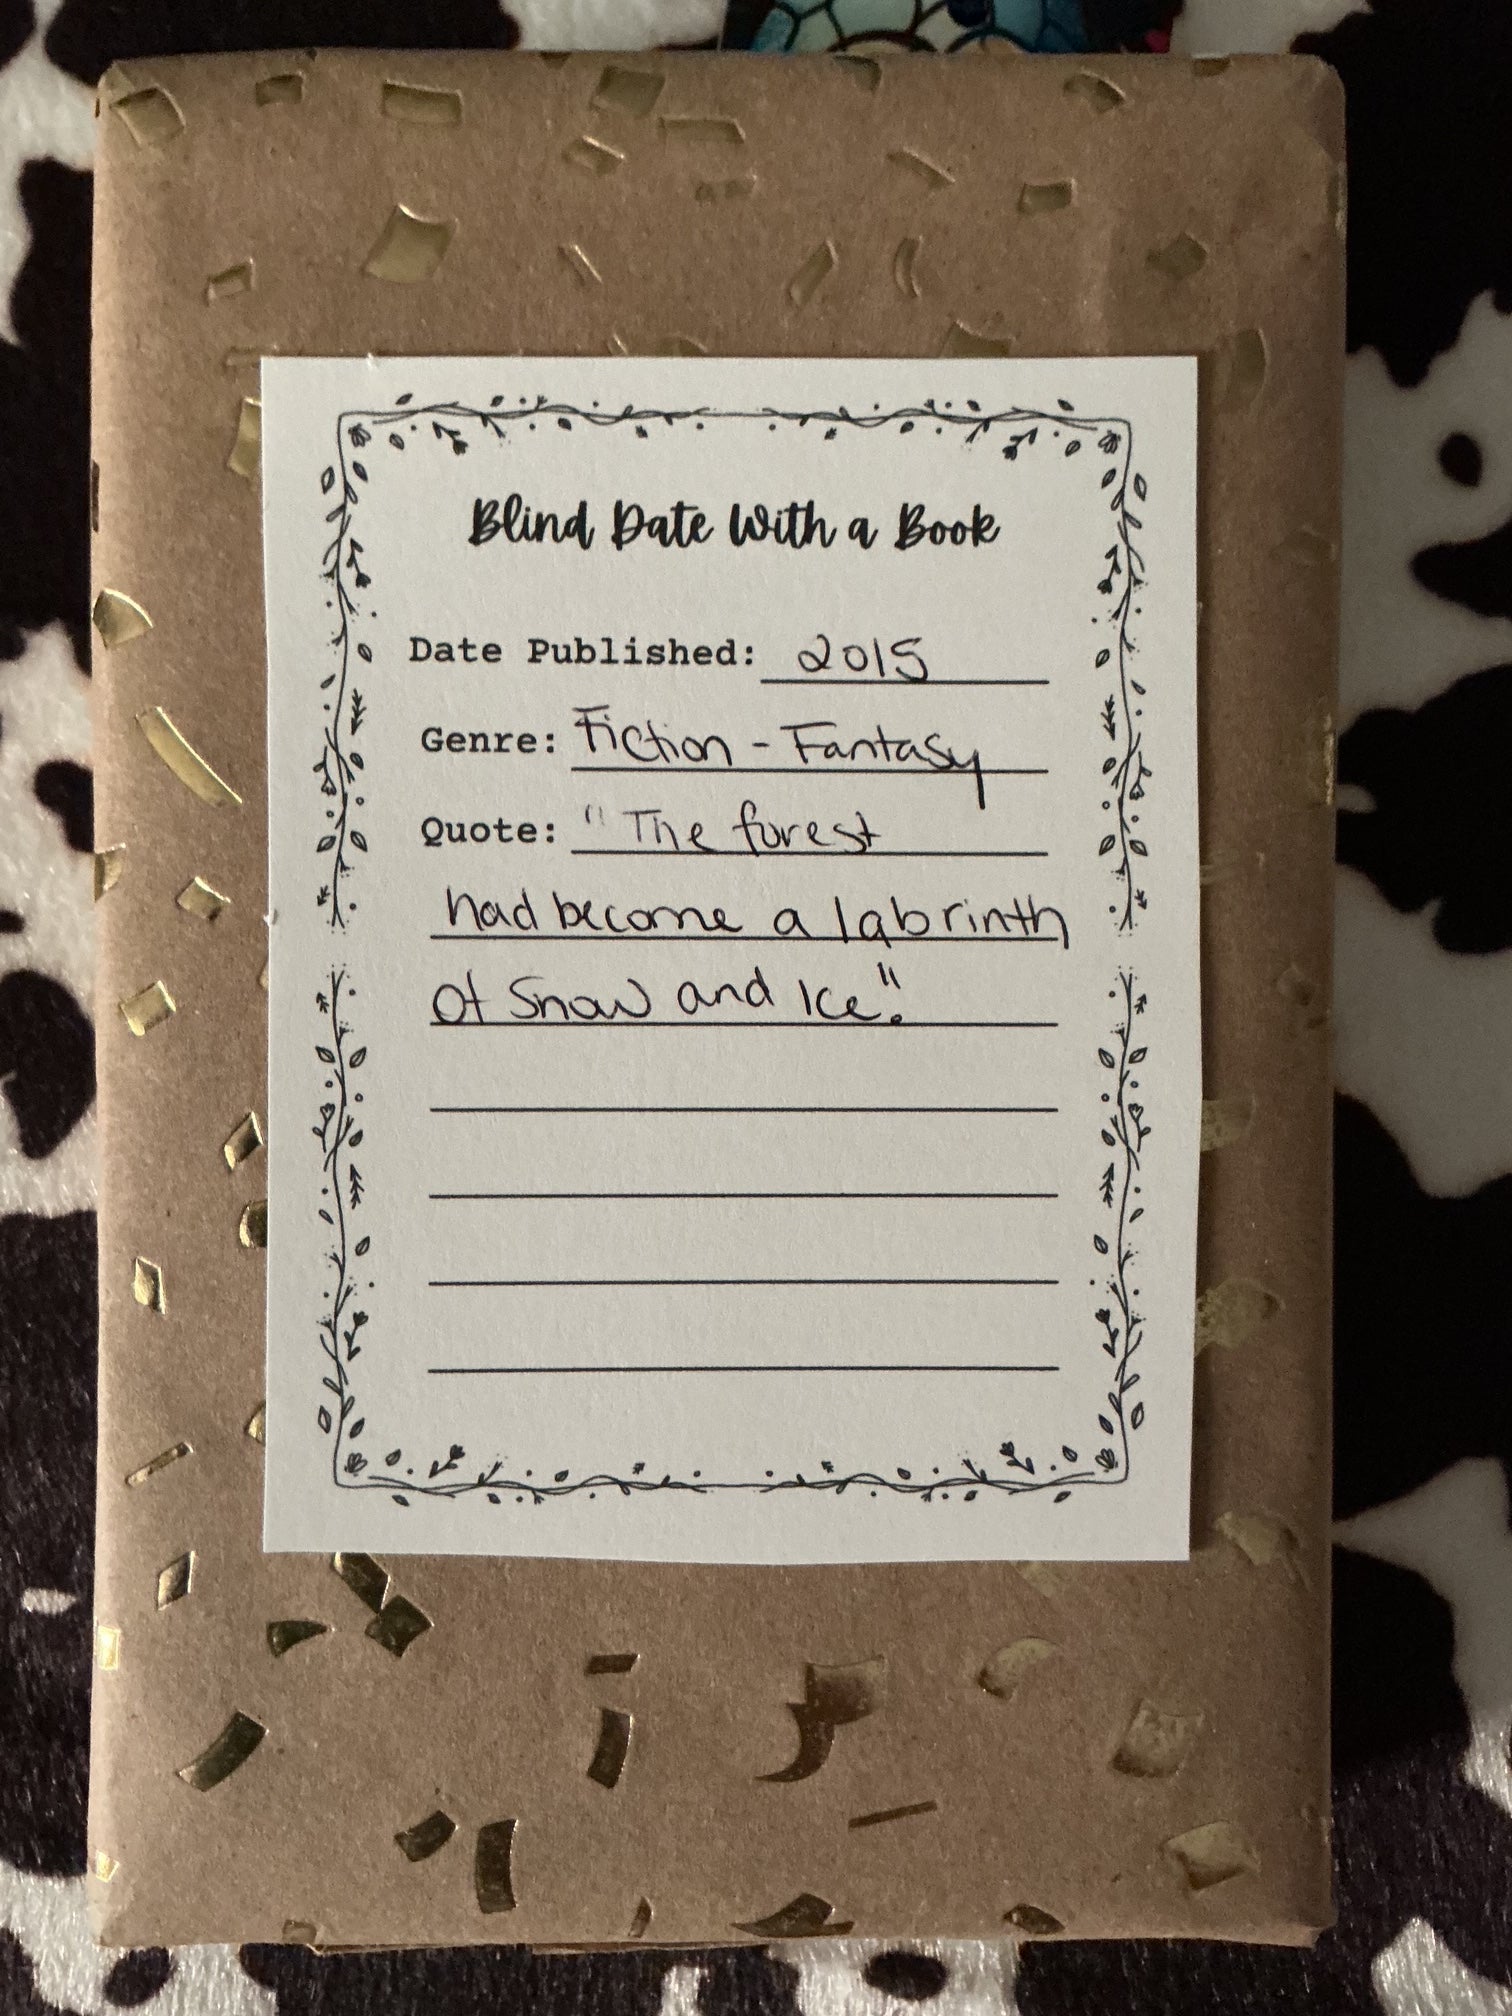 Blind Date With a Book
Date Published: 2015
Genre: Fiction - Fantasy
Quote: "The forest
had become a labrinth
of Snow and Ice".